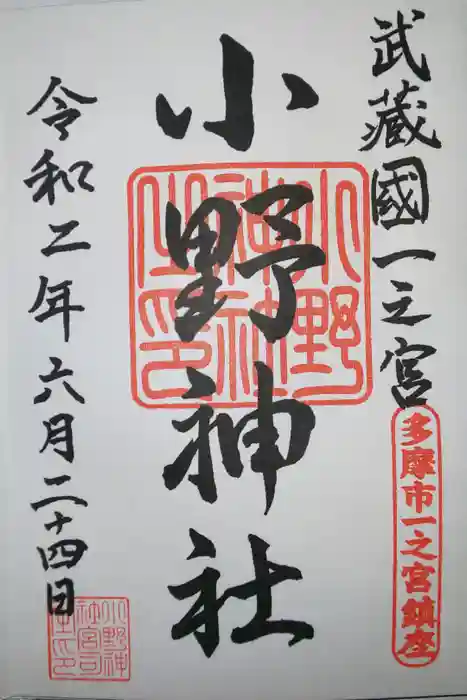 武蔵國一之宮
多摩市一之宮鎮座
小野神社
小野神社之印
令和二年六月二十四日
小野神社宮司之印